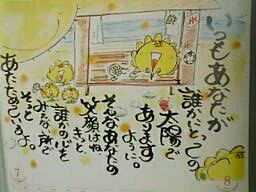 いつもあなたが
誰かにとっての
太陽で
ありますように。
そんなあなたの
笑顔はね
きっと
誰かの心を
みえない所で
そっと
あたためているよ。
7
8